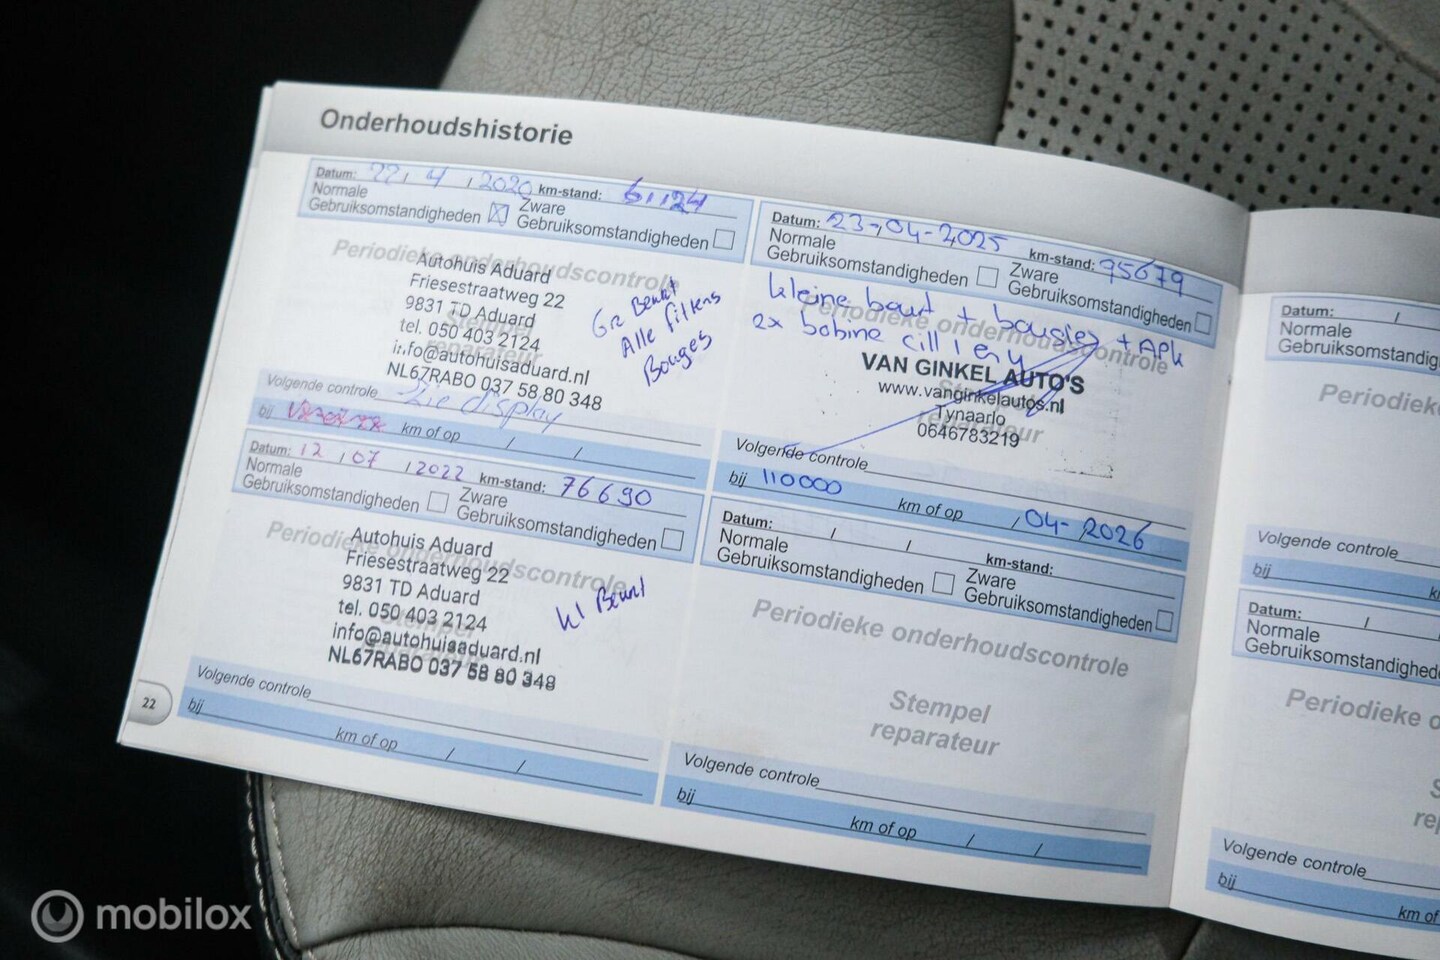 Onderhoudshistorie
Datum: 22 / 4 / 2020 km-stand: 61124
Normale
Gebruiksomstandigheden
Zware
Gebruiksomstandigheden
Periodieke onderhoudscontrole
Stempel
reparateur
Autohuis Aduard
Friesestraatweg 22
9831 TD Aduard
tel. 050 403 2124
info@autohuisaduard.nl
NL67RABO 037 58 80 348
Gr Beurt
Alle filters
Bouges
Volgende controle Zie display
bij km of op / /
Datum: 12 / 07 / 2022 km-stand: 76690
Normale
Gebruiksomstandigheden
Zware
Gebruiksomstandigheden
Periodieke onderhoudscontrole
Stempel
Autohuis Aduard
Friesestraatweg 22
9831 TD Aduard
tel. 050 403 2124
info@autohuisaduard.nl
NL67RABO 037 58 80 348
kl Beurt
Volgende controle
bij km of op / /
22
Datum: 23-04-2025 km-stand: 95679
Normale
Gebruiksomstandigheden
Zware
Gebruiksomstandigheden
Periodieke onderhoudscontrole
Stempel
reparateur
kleine beurt + bousies + APK
2x bobine cill 1 en 4
VAN GINKEL AUTO'S
www.vanginkelautos.nl
Tynaarlo
0646783219
Volgende controle
bij 110000 km of op / 04-2026
Datum: / / km-stand:
Normale
Gebruiksomstandigheden
Zware
Gebruiksomstandigheden
Periodieke onderhoudscontrole
Stempel
reparateur
Volgende controle
bij km of op / /
Datum: /
Normale
Gebruiksomstandig
Periodiek
Volgende controle
bij k
Datum: / /
Normale
Gebruiksomstandighed
Periodieke o
S
rep
Volgende controle
bij km of
mobilox